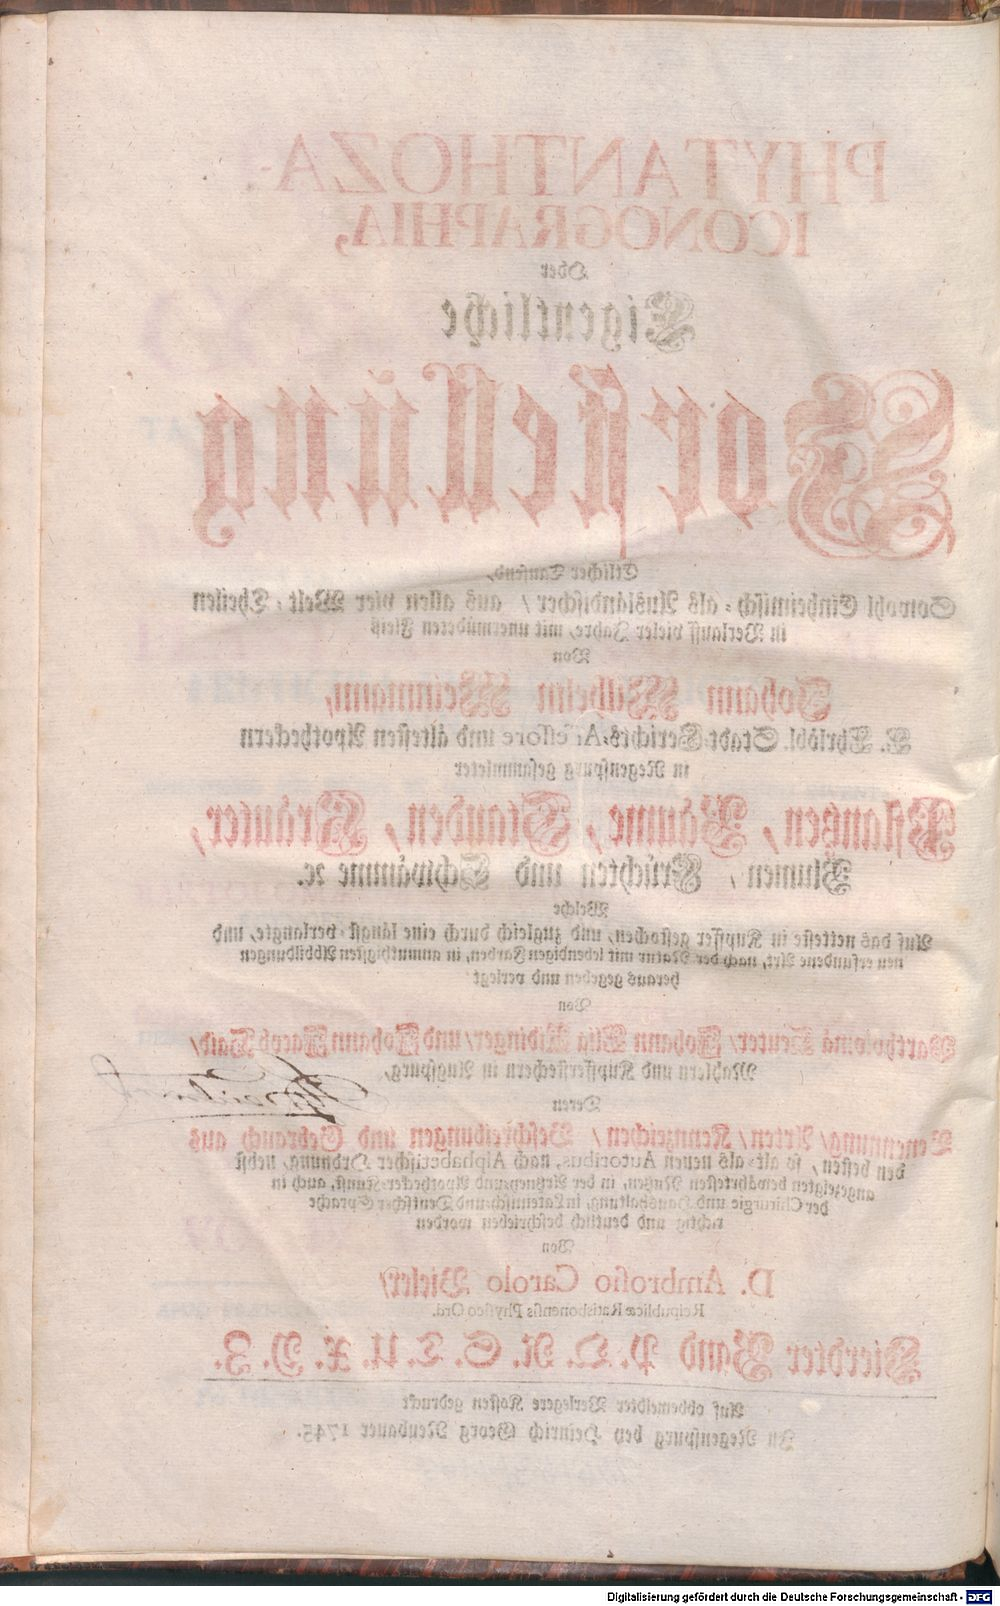 PHYTANTHOZA-
ICONOGRAPHIA,
Oder
Eigentliche
Vorstellung
Etlicher Tausend,
Sowohl Einheimisch- als Ausländischer / aus allen vier Welt-Theilen
in Verlauff vieler Jahre, mit unermüdeten Fleiß
Von
Johann Wilhelm Weinmann,
E. Ehrlöbl. Stadt-Gerichts-Assessore und ältesten Apotheckern
in Regenspurg gesammleter
Pflantzen / Bäume, Stauden / Kräuter,
Blumen / Früchten und Schwämme ꝛc.
Welche
Auf das netteste in Kupffer gestochen, und zugleich durch eine längst-verlangte, und
neu erfundene Art, nach der Natur mit lebendigen Farben, in anmuthigsten Abbildungen
heraus gegeben und verlegt
Von
Bartholomä Seuter / Johann Elia Ridinger / und Johann Jacob Haid /
Mahlern und Kupfferstechern in Augspurg,
Deren
Benennung / Arten / Kennzeichen / Beschreibungen und Gebrauch aus
den besten / so alt- als neuen Autoribus, nach Alphabetischer Ordnung, nebst
angezeigten bewährtesten Nutzen, in der Artzney- und Apothecker-Kunst, auch in
der Chirurgie und Haushaltung, in Lateinisch- und Deutscher Sprache
richtig und deutlich beschrieben worden
Von
D. Ambrosio Carolo Bieler /
Reipublicæ Ratisbonensis Physico Ord.
Vierdter Band P. Q. R. S. T. U. X. Y. Z.
Auf obbemeldter Verlegere Kosten gedruckt
In Regenspurg bey Heinrich Georg Neubauer 1745.
Digitalisierung gefördert durch die Deutsche Forschungsgemeinschaft - DFG